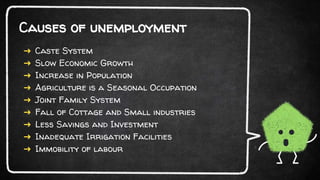 Causes of unemployment
➔ Caste System
➔ Slow Economic Growth
➔ Increase in Population
➔ Agriculture is a Seasonal Occupation
➔ Joint Family System
➔ Fall of Cottage and Small industries
➔ Less Savings and Investment
➔ Inadequate Irrigation Facilities
➔ Immobility of labour